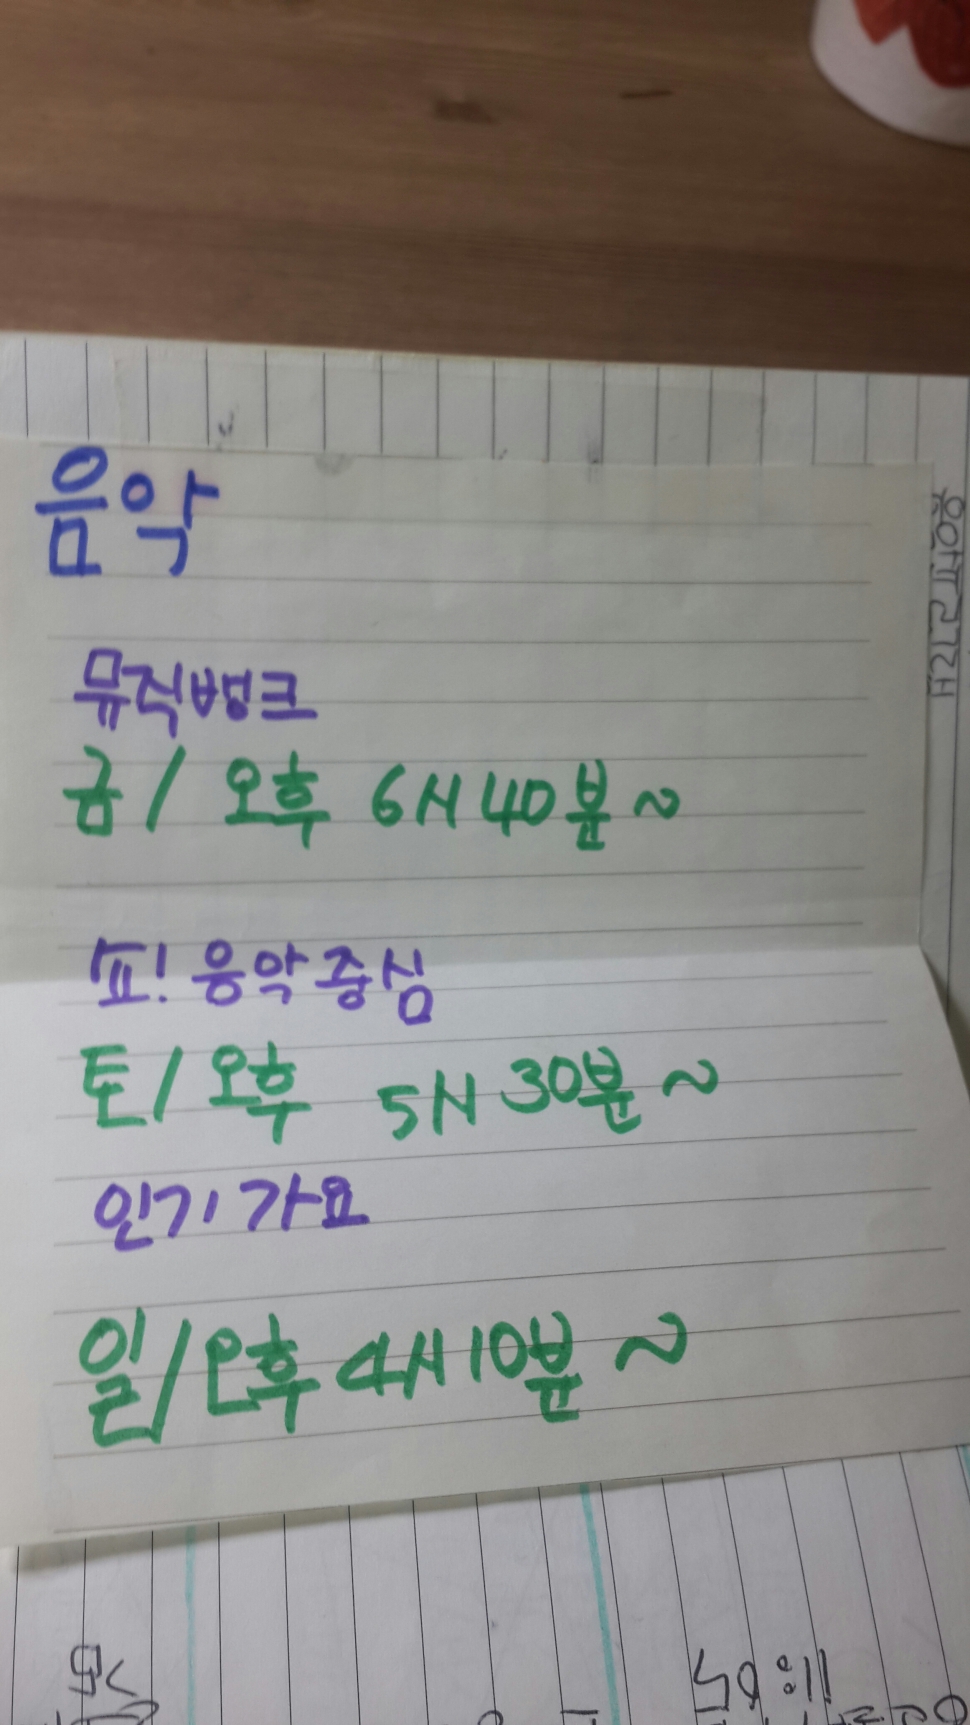 음악
뮤직뱅크
금/ 오후 6시40분~
쇼! 음악중심
토/오후 5시30분~
인기가요
일/오후4시10분~